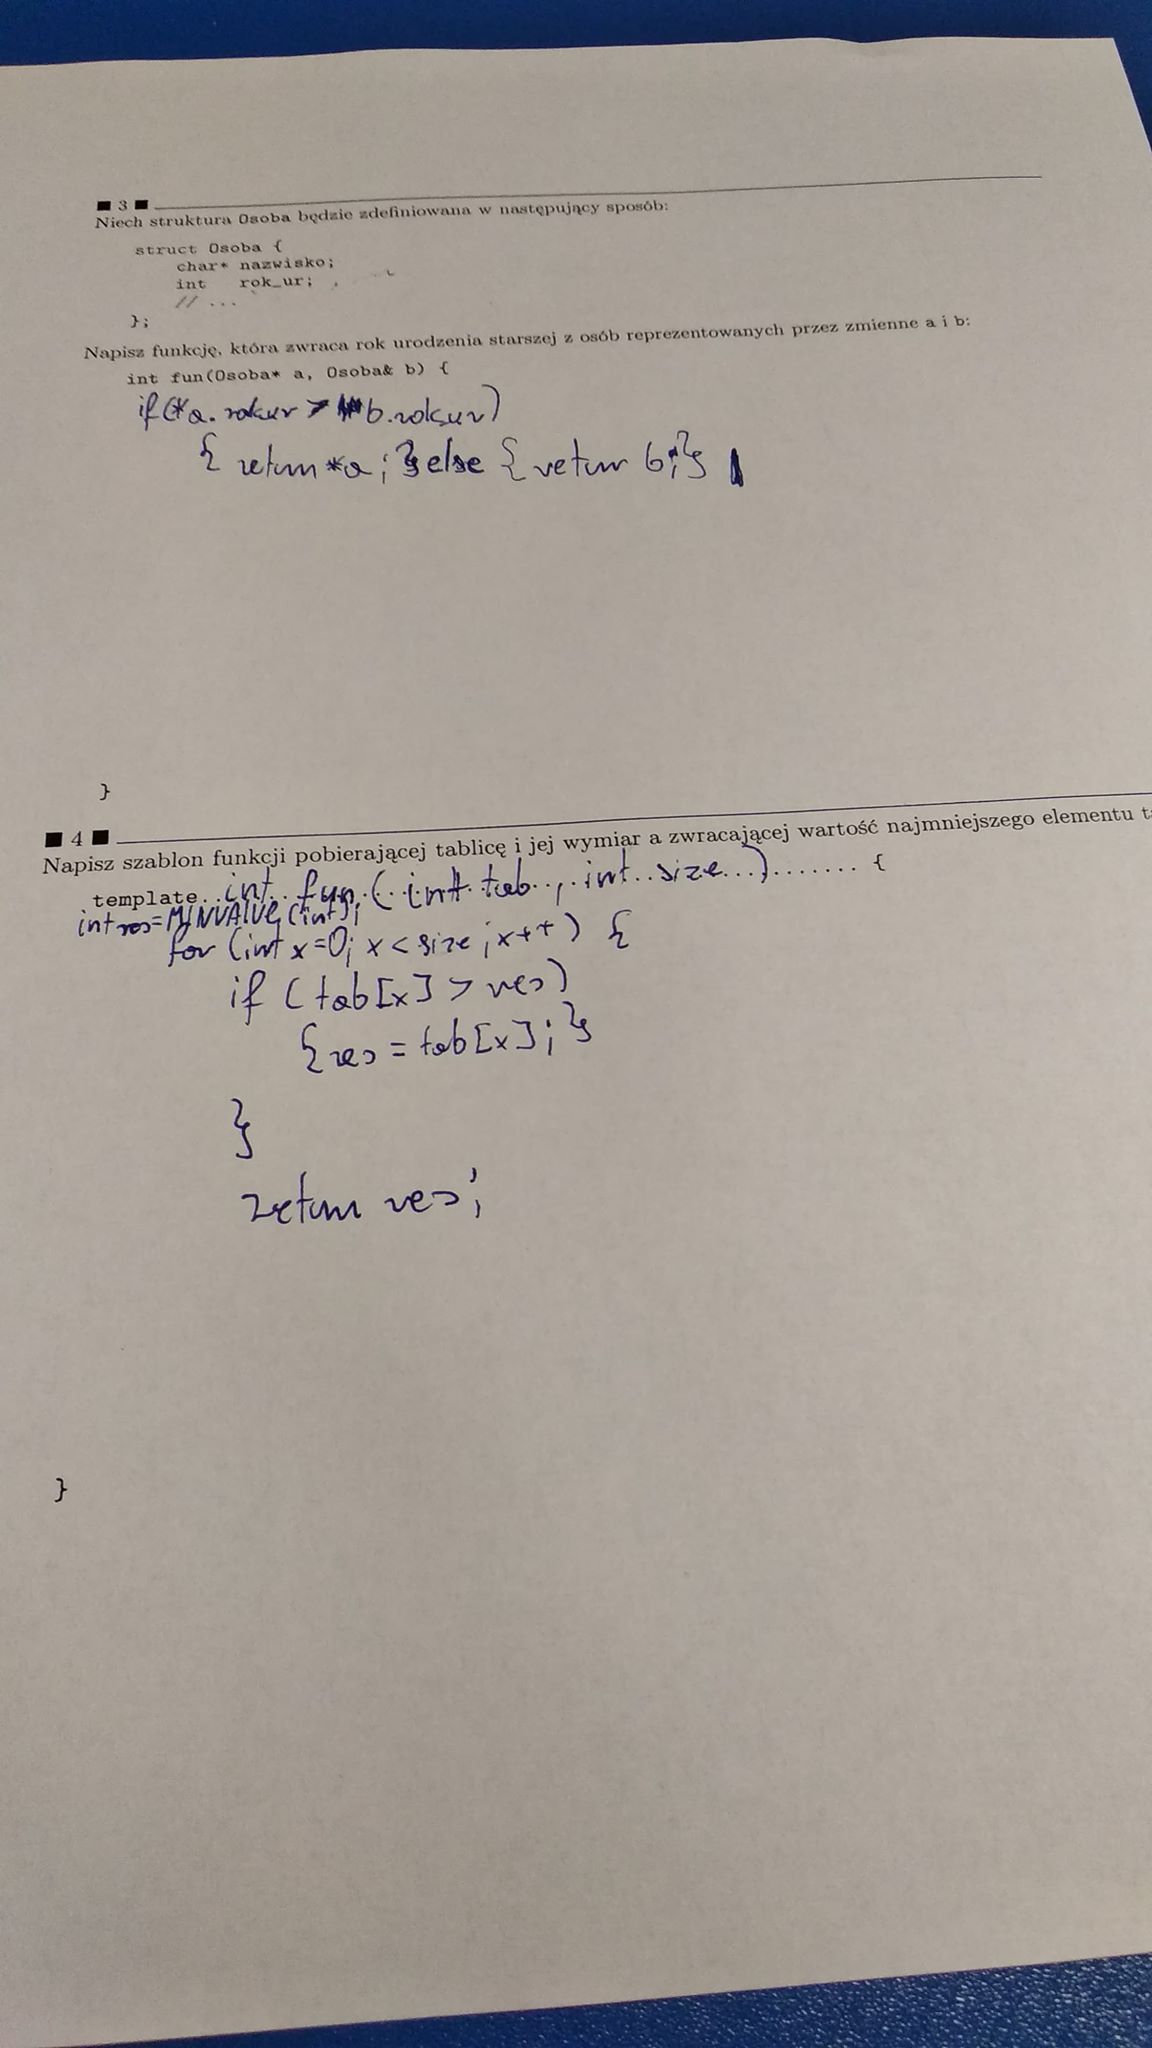 ■ 3 ■
Niech struktura Osoba będzie zdefiniowana w następujący sposób:
struct Osoba {
char* nazwisko;
int rok_ur;
// ...
};
Napisz funkcję, która zwraca rok urodzenia starszej z osób reprezentowanych przez zmienne a i b:
int fun(Osoba* a, Osoba& b) {
if (*a.rokur > b.rokur)
{ return *a; } else { retur b; }
}
■ 4 ■
Napisz szablon funkcji pobierającej tablicę i jej wymiar a zwracającej wartość najmniejszego elementu t
template..int..fun.(..int*.tab..,.int..size...)....... {
int res=MINVALUE(int);
for (int x=0; x<size; x++) {
if (tab[x] > res)
{ res = tab[x]; }
}
return res;
}